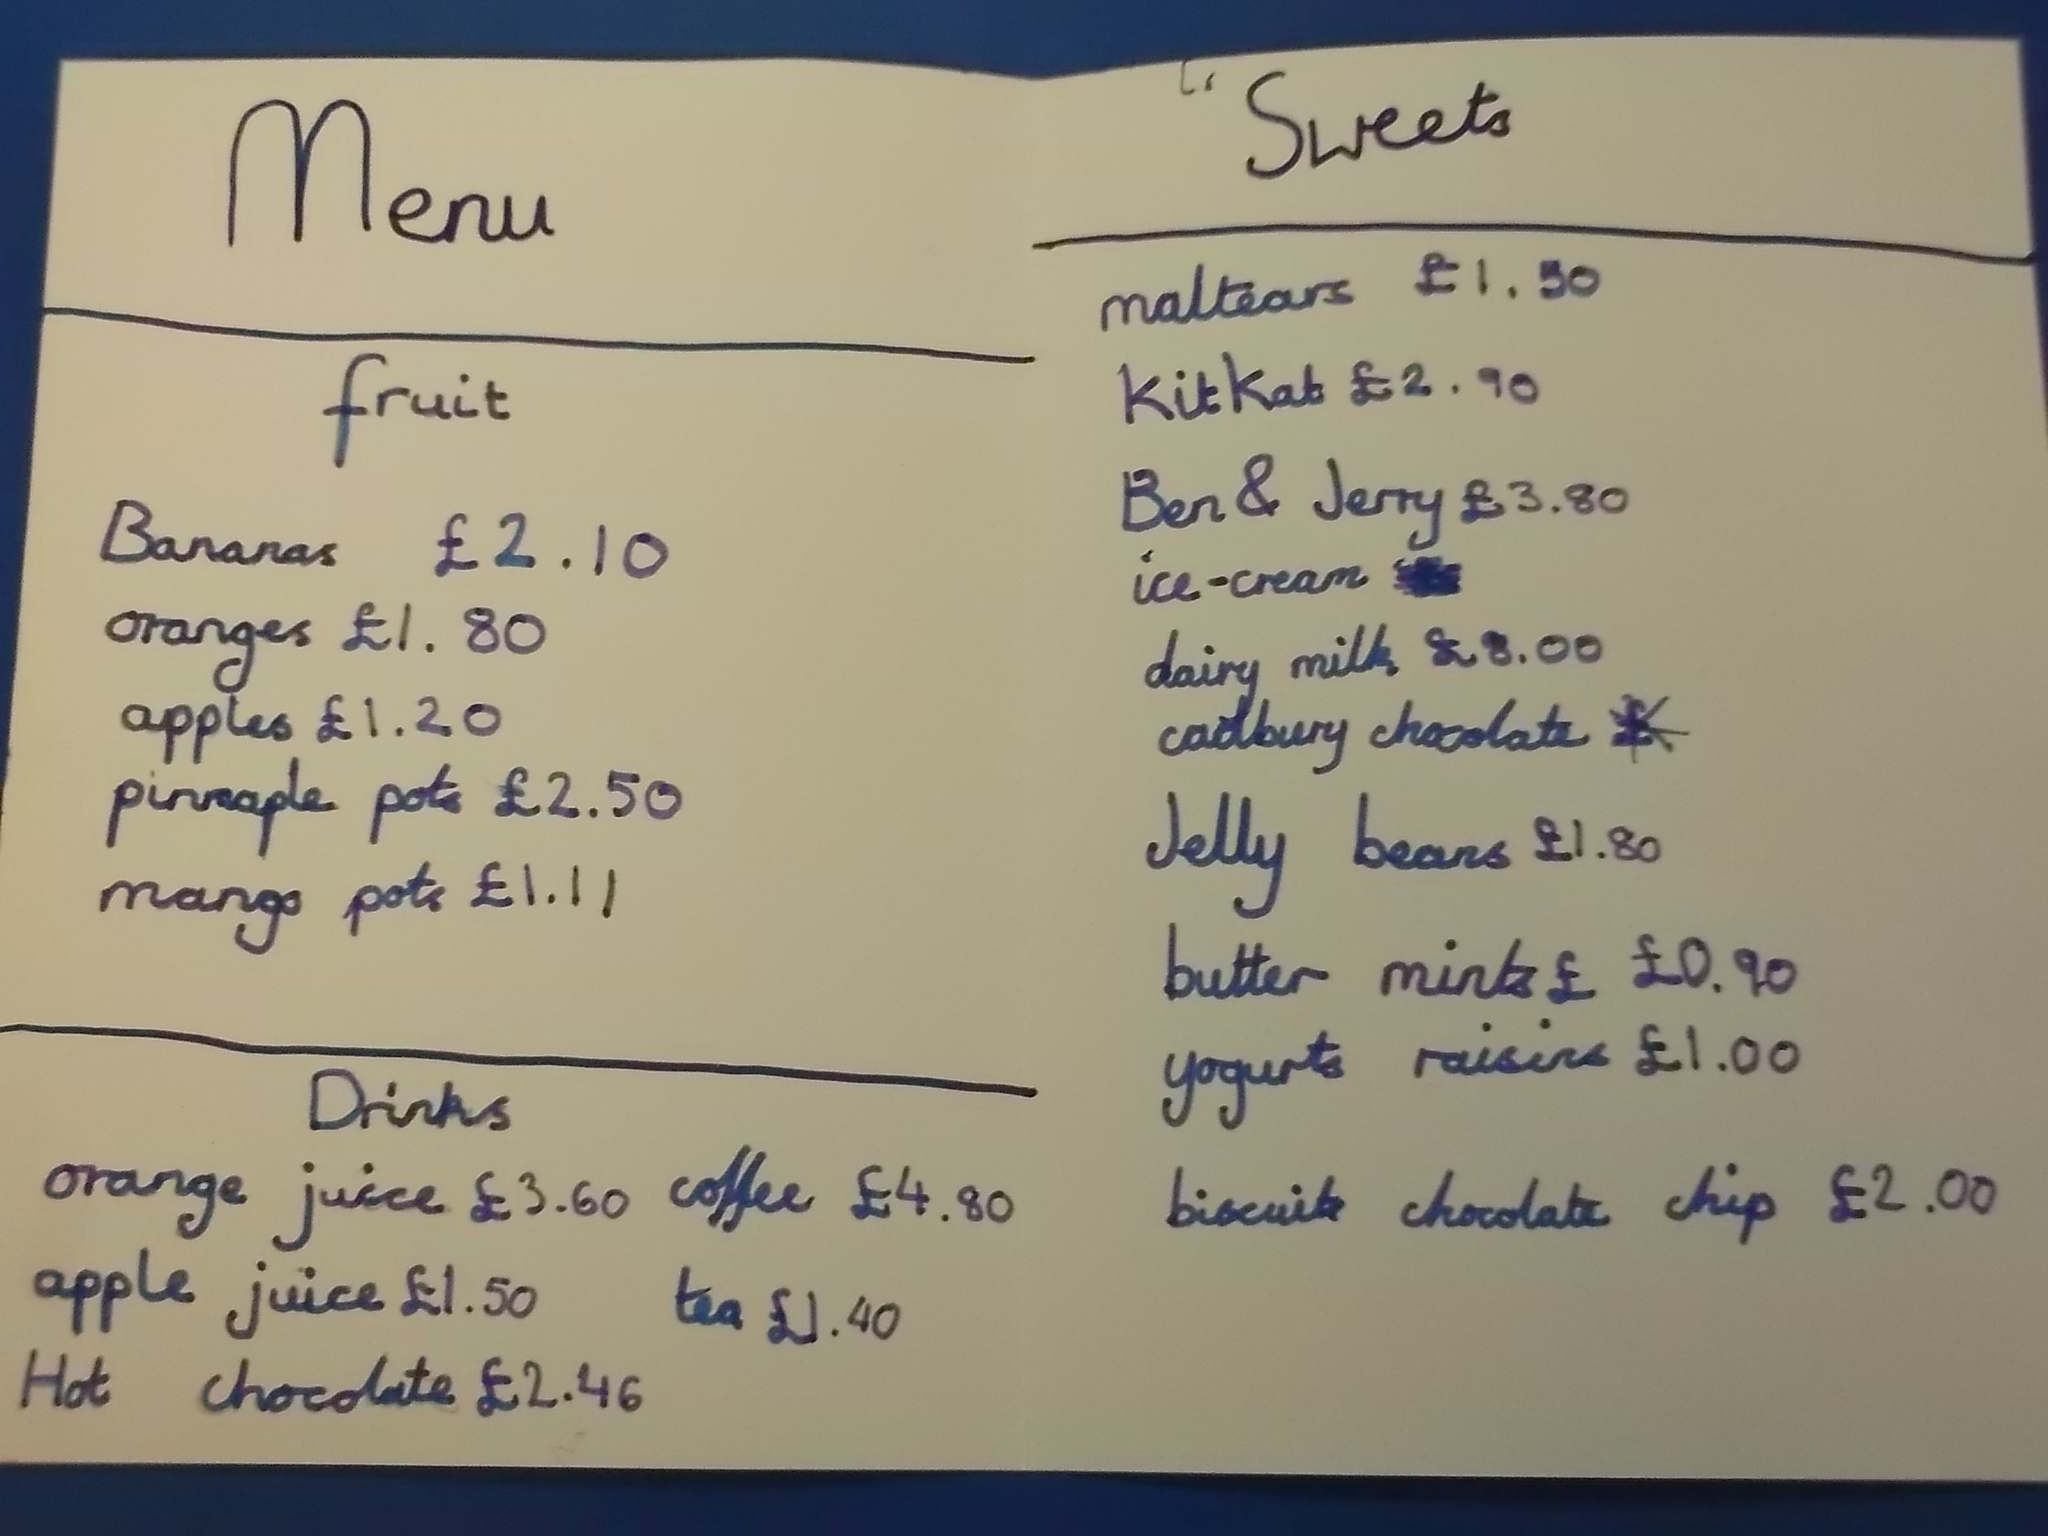 Menu
fruit
Bananas £2.10
oranges £1.80
apples £1.20
pinneaple pots £2.50
mango pots £1.11
Drinks
orange juice £3.60 coffee £4.80
apple juice £1.50 tea £1.40
Hot chocolate £2.46
Sweets
maltears £1.50
KitKat £2.90
Ben & Jerry £3.80
ice-cream
dairy milk £8.00
cadbury chocolate
Jelly beans £1.80
butter mints £ £0.90
yogurts raisins £1.00
biscuits chocolate chip £2.00